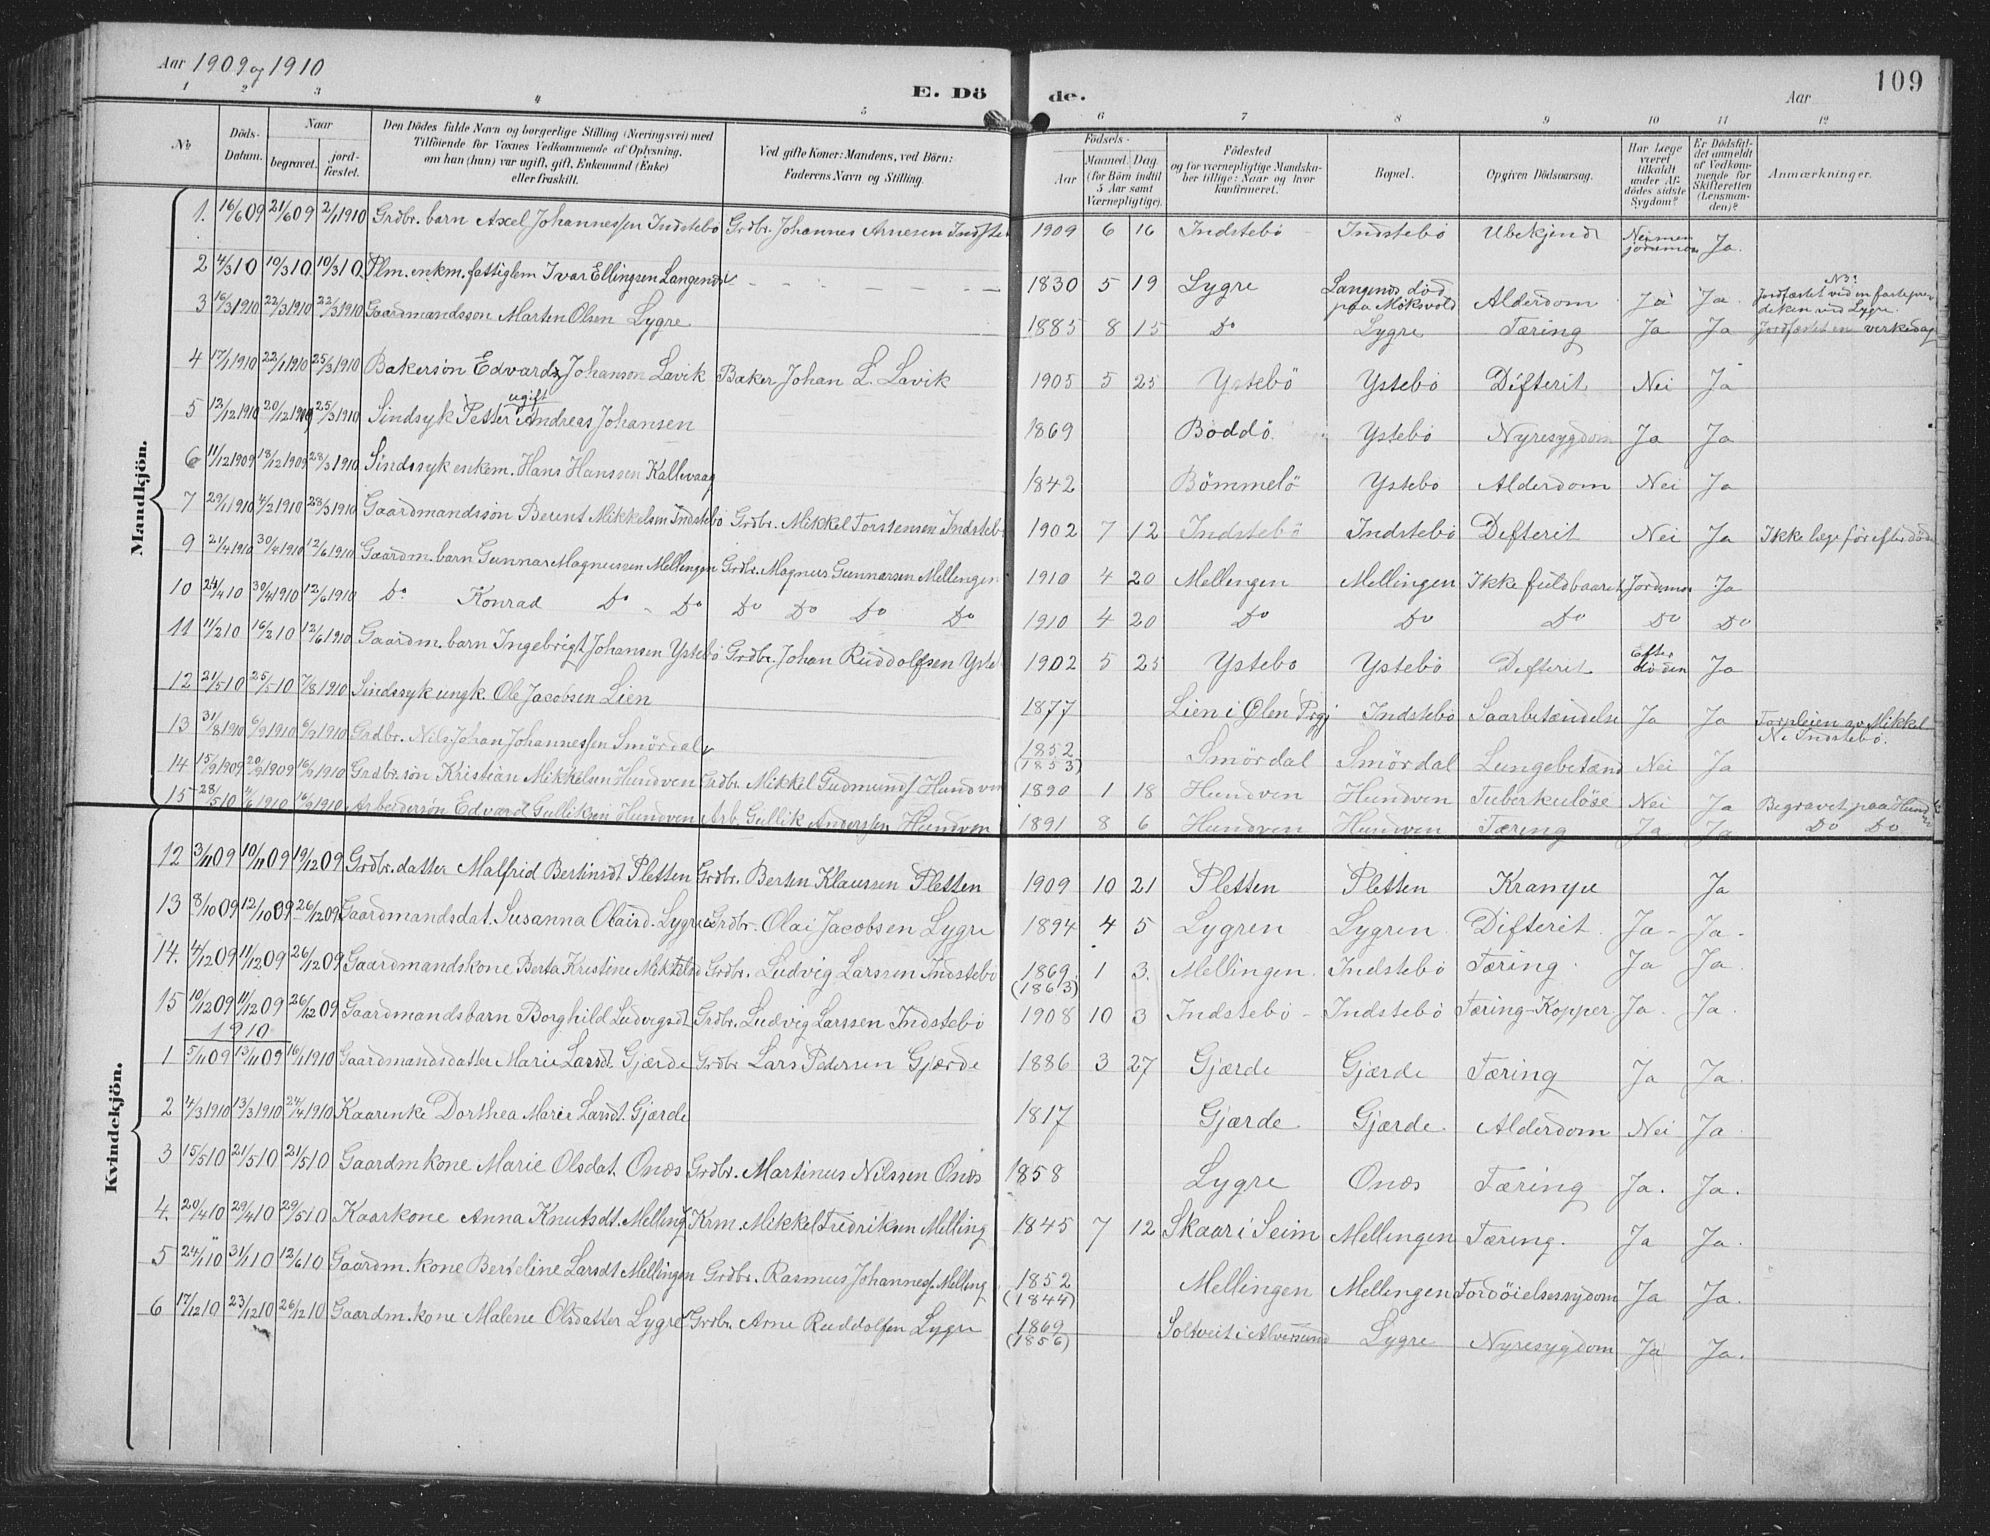 Aar 1909 og 1910
E. Dö de.
Aar
109
1 2 3 4 5 6 7 8 9 10 11 12
No
Döds-Datum.
Naar
begravet.
jord-fæstet.
Den Dödes fulde Navn og borgerlige Stilling (Næringsvei) med
Tilföiende for Voxnes Vedkommende af Oplysning,
om han (hun) var ugift, gift, Enkemand (Enke)
eller fraskilt.
Ved gifte Koner: Mandens, ved Börn:
Faderens Navn og Stilling.
Födsels-
Aar
Maaned. Dag.
(for Börn indtil
5 Aar samt
Værnepligtige).
Födested
og for værnepligtige Mandska-
ber tillige: Naar og hvor
konfirmeret.
Bopæl.
Opgiven Dödsaarsag.
Har Læge
været
tilkaldt
under Af-
dödes sidste
Sygdom?
Er Dödsfal-
det anmeldt
af Vedkom-
mende for
Skifteretten
(Lensman-
den)?
Anmærkninger.
Mandkjön.
1. 16/6 09 21/6 09 2/1 1910 Grdbr. barn Axel Johannessen Indstebö Grdbr. Johannes Arnesen 1909 6 16 Indstebö Indstebö Ubekjendt Nei men jordmor Ja.
2 4/3 10 10/3 10 10/3 10 Plm. enkm. fattiglem Ivar Ellingsen 1830 5 19 Lygre Langenes död paa Mökvold Alderdom Ja Ja. NB? Jordfæstet ved en fastepre- diken ved Lygre.
3 16/3 1910 22/3 1910 22/3 1910 Gaardmandssön Marten Olsen Lygre 1885 8 15 Do Lygre Tæring Ja Ja Jordfæstet en verkedag
4 17/1 1910 22/1 1910 25/3 1910 Bakersön Edvard Johanson Lavik Baker Johan L. Lavik 1905 5 25 Ystebö Ystebö Difterit Nei Ja
5 12/12 1910 20/12 25/3 1910 Sindsyk ugift Petter Andreas Johansen 1869 Boddö Ystebö Nyresygdom Ja Ja
6 11/12 1909 18/12 1909 28/3 1910 Sindssyk enkem. Hans Hanssen Kallevaag 1842 Bömmelö Ystebö Alderdom Nei Ja
7 29/1 1910 4/2 1910 28/3 1910 Gaardmandssön Berent Mikkelsen Indstebö Grdbr. Mikkel Torstensen Indstebö 1902 7 12 Indstebö Indstebö Difterit Nei Ja Ikke læge för efter
9 21/4 1910 30/4 1910 12/6 1910 Gaardm. barn Gunnar Magnussen Mellingen Grdbr. Magnus Gunnarsen Mellingen 1910 4 20 Mellengen Mellingen Ikke fuldbaaret Jordmor Ja
10 24/4 10 30/4 1910 12/6 1910 Do Konrad Do - Do Do Do Do Do 1910 4 20 Do Do Do Do Do
11 11/2 10 16/2 10 12/6 1910 Gaardm. barn Ingebrigt Johansen Ystebö Grdbr. Johan Ruddolfsen 1902 5 25 Ystebo Ystebö Difterit Efter döden Ja
12 21/5 10 25/5 10 7/8 1910 Sindssyk ungk. Ole Jacobsen Lien 1877 Lien i Ølen Indstebö Saarbetændelse Ja Ja Forpleien av Mikkel N. Indstebö.
13 31/8 1910 6/9 1910 6/9 1910 Grdbr. Nils Johan Johannessen Smördal 1852 (1853) Smördal Smördal Lungebetænd Nei Ja
14 15/9 1909 20/9 1909 16/9 1910 Grdbr. sön Kristian Mikkelsen Hundven Grdbr. Mikkel Gudmunds Hundven 1890 1 18 Hundven Hundven Tuberkulöse Nei Ja Begravet paa
15 28/5 10 1910 16/9 1910 Arbeidersön Edvard Gulliksen Hundven Arb. Gullik Anderssen Hundven 1891 8 6 Hundven Hundven Tæring Ja Ja Do Do
Kvindekjön.
12 3/11 09 10/11 09 19/12 09 Grdbr. datter Malfrid Bertinsdt Pletten Grdbr. Berten Klaussen Pletten 1909 10 21 Pletten Pletten Krampe Ja
13 8/10 09 12/10 09 26/12 09 Gaardmandsdat. Susanna Olaisd. Lygre Grdbr. Olai Jacobsen Lygre 1894 4 5 Lygren Lygren Difterit. Ja - Ja -
14. 4/12 09 11/12 09 26/12 09 Gaardmandskone Berta Kristine Grdbr. Ludvig Larssen Indstebö 1869 (1863) 1 3. Mellingen. Indstebö Tæring. Ja Ja
15 10/12 09 11/12 09 26/12 09 Gaardmandsbarn Borghild Ludvigsdt Grdbr. Ludvig Larssen Indstebö 1908 10 3 Indstebö - Indstebö Tæring-Kopper Ja. Ja.
1910
1 5/11 09 13/11 09 16/1 1910 Gaardmandsdatter Marie Larsdt. Gjærde Grdbr Lars Pedersen Gjærde 1886 3 27 Gjærde Gjærde Tæring Ja Ja.
2 4/3 1910 13/3 1910 24/4 1910 Kaarenke Dorthea Marie Larsdt. Gjærde 1817 Gjærde. Gjærde. Alderdom Nei Ja.
3 15/5 10 21/5 10 21/5 10 Gaardm kone Marie Olsdat. Onæs Grdbr. Martinus Nilssen Onæs 1858 Lygre Onæs Tæring Ja. Ja.
4. 20/4 10 29/4 10 29/5 10 Kaarkone Anna Knutsdt. Melling Krm. Mikkel Fredriksen Melling 1845 7 12 Skaar i Seim Mellingen Tæring. Ja Ja.
5 24/1 10 31/1 10 12/6 10 Gaardm. kone Berteline Larsdt Mellingen Grdbr. Rasmus Johannes. Melling 1852 (1844) Mellingen Mellingen Fordöielsessygdom Ja Ja.
6 17/12 10 23/12 10 26/12 10 Gaardm. kone Malene Olsdatter Lygre Grdbr. Arne Ruddolfsen Lygre 1869 (1856) Soltveit i Alversund Lygre Nyresygdom Ja Ja.